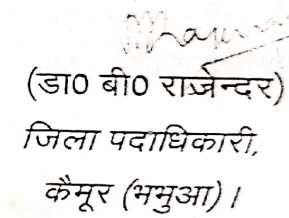 (डा0 बी0 राजेन्दर)
जिला पदाधिकारी,
कैमूर (भभुआ) ।